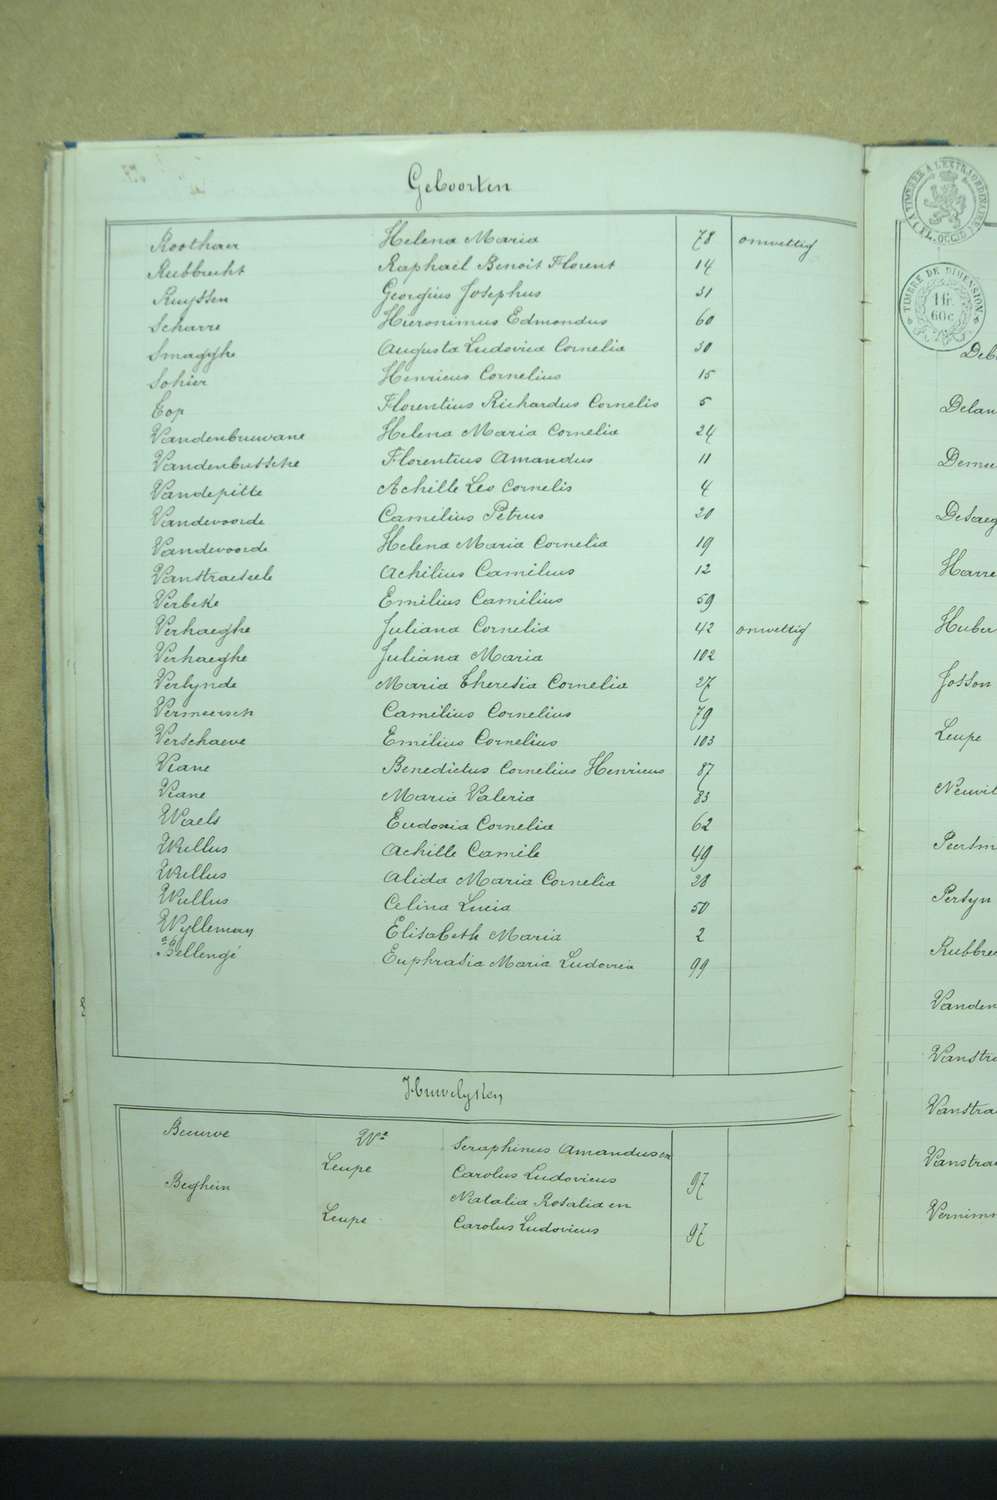 Geboorten
Roothaer Helena Maria 78 onwettig
Rubbrecht Raphaël Benoit Florent 14
Ruyssen Georgius Josephus 31
Scharre Hieronimus Edmondus 60
Smagghe Augusta Ludovica Cornelia 30
Sohier Henricus Cornelius 15
Top Florentius Richardus Cornelis 5
Vandenbuwane Helena Maria Cornelia 24
Vandenbussche Florentius Amandus 11
Vandepitte Achille Leo Cornelis 4
Vandevoorde Camilius Petrus 20
Vandevoorde Helena Maria Cornelia 19
Vanstraeseele Achilius Camilius 12
Verbeke Emilius Camilius 59
Verhaeghe Juliana Cornelia 42 onwettig
Verhaeghe Juliana Maria 102
Verlynde Maria Theresia Cornelia 27
Vermeersch Camilius Cornelius 79
Verschaeve Emilius Cornelius 103
Viane Benedictus Cornelius Henricus 87
Viane Maria Valeria 83
Waels Eudoxia Cornelia 62
Wullus Achille Camile 49
Wullus Alida Maria Cornelia 28
Wullus Celina Lucia 50
Wylleman Elisabeth Maria 2
Bellengé Euphrasia Maria Ludovica 99
Huwelyken
Beurve We Seraphinus Amandus en
Leupe Carolus Ludovicus 97
Beghein Natalia Rosalia en
Leupe Carolus Ludovicus 97
TIMBRE A L'EXTRAORDINAIRE
TIMBRE DE DIMENSION
1 fr.
60 c.
Deb
Delan
Demu
Desaeg
Harre
Huber
Josson
Leupe
Neuvil
Peertm
Persyn
Rubbrec
Vanden
Vanstra
Vanstra
Vanstra
Vernimm